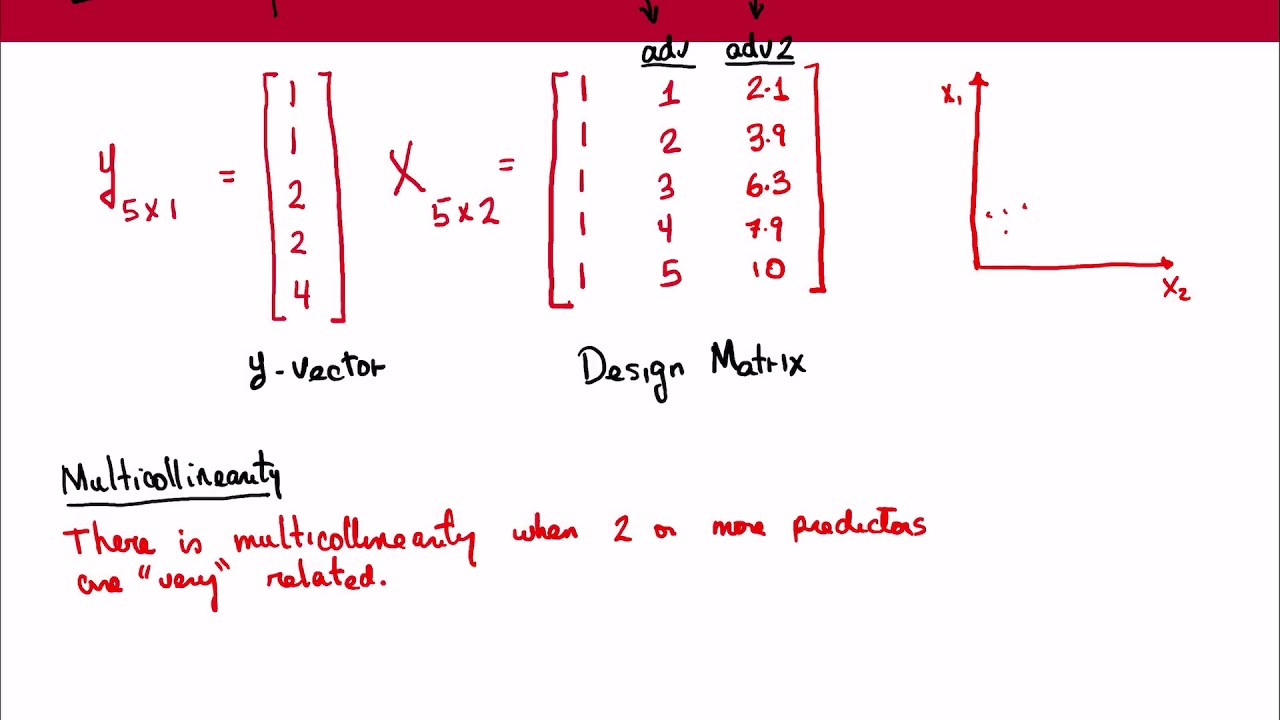 adv adv2
y 5x1 = [ 1 1 2 2 4 ]
X 5x2 =
1 1 2.1
1 2 3.9
1 3 6.3
1 4 7.9
1 5 10
x1
x2
y-vector
Design Matrix
Multicollinearity
There is multicollinearity when 2 or more predictors
are "very" related.